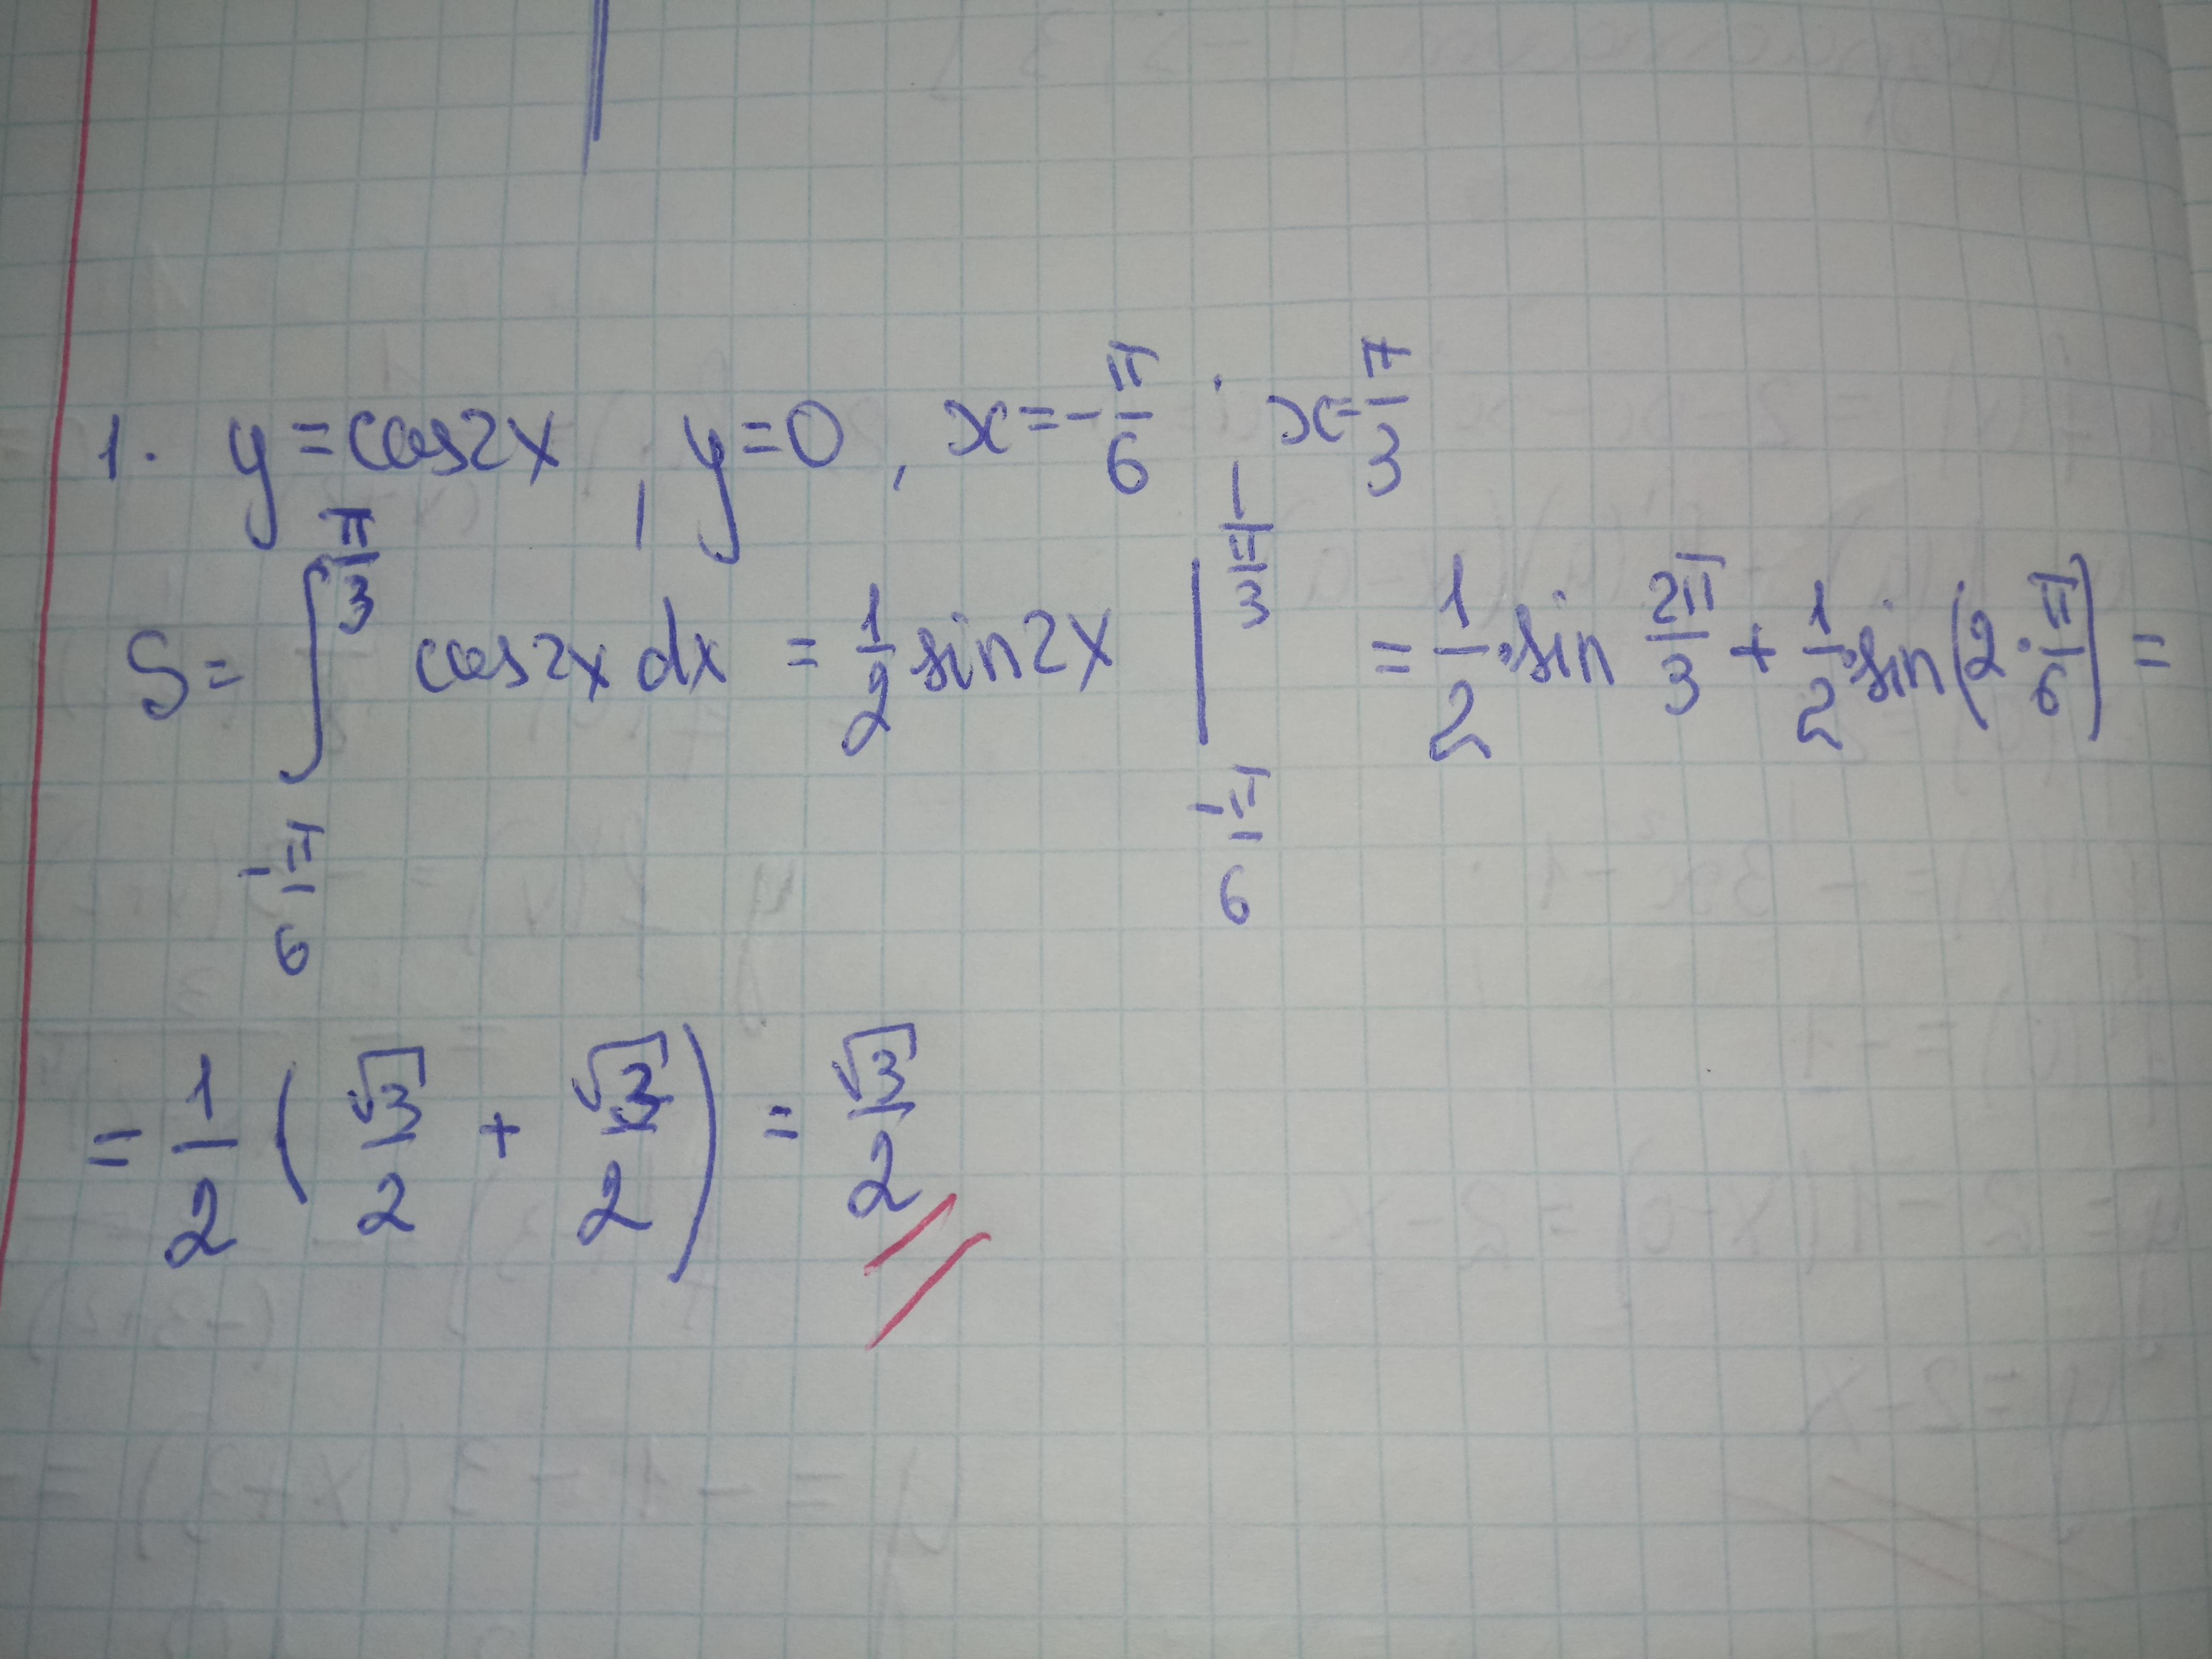 1. y = cos2x , y = 0 , x = -π/6 ; x = π/3
S = ∫_{-π/6}^{π/3} cos2x dx = 1/2 sin2x |_{-π/6}^{π/3} = 1/2 · sin 2π/3 + 1/2 · sin(2 · π/6) =
= 1/2 ( √3/2 + √3/2 ) = √3/2